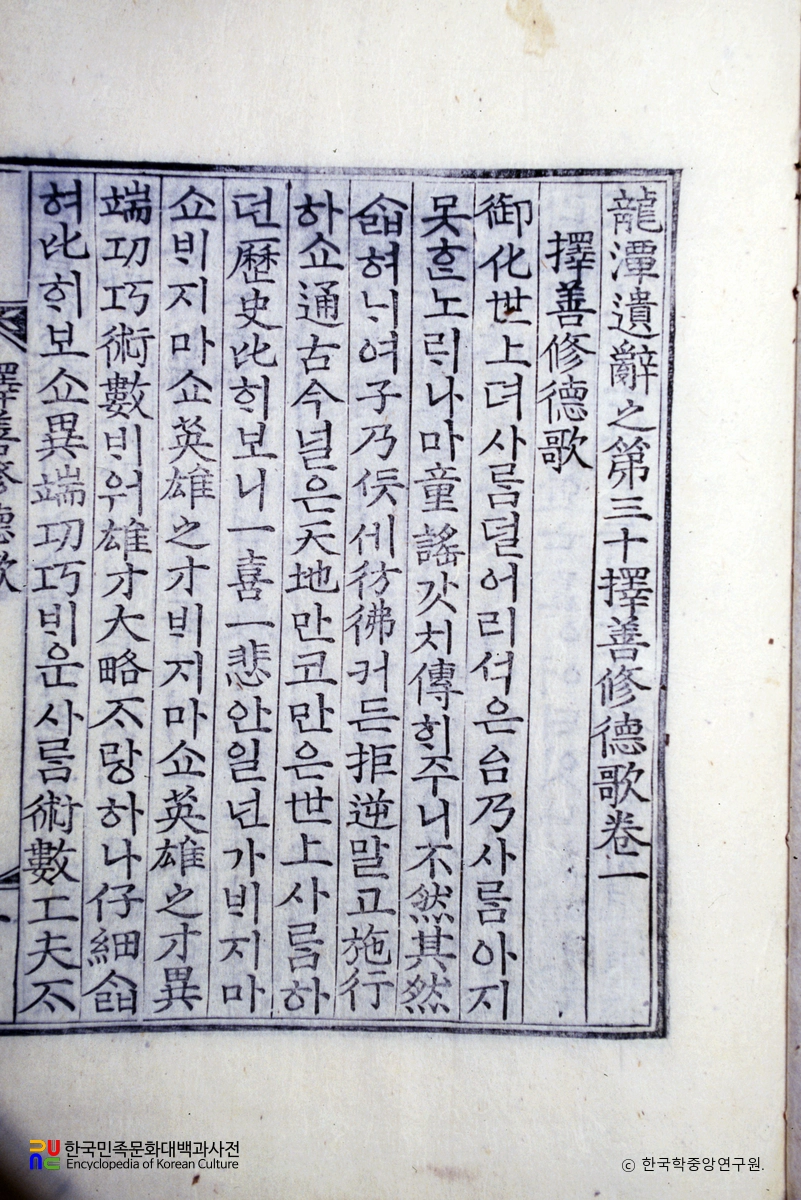 龍潭遺辭之第三十擇善修德歌卷二
擇善修德歌
御化世上뎌사ᄅᆷ덜어리셕은台乃사ᄅᆷ아지
못ᄒᆞᆫ노ᄅᆡ나마童謠갓치傳ᄒᆡ주니不然其然
슯혀ᄂᆡ여子乃伕세彷彿커든拒逆말고施行
하쇼通古今널은天地만코만은世上사ᄅᆷ하
던歷史比ᄒᆡ보니一喜一悲안일넌가ᄇᆡ지마
쇼ᄇᆡ지마쇼英雄之才ᄇᆡ지마쇼英雄之才異
端功巧術數ᄇᆡ워雄才大略ᄌᆞ랑하나仔細슯
혀比ᄒᆡ보쇼異端功巧ᄇᆡ운사ᄅᆷ術數工夫ᄌᆞ
擇善修德歌
한국민족문화대백과사전
Encyclopedia of Korean Culture
ⓒ 한국학중앙연구원.